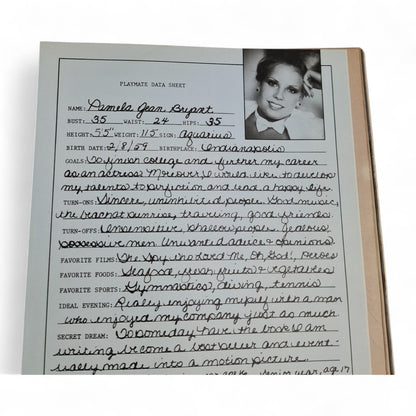 PLAYMATE DATA SHEET
NAME: Pamela Jean Bryant
BUST: 35 WAIST: 24 HIPS: 35
HEIGHT: 5'5" WEIGHT: 115 SIGN: aquarius
BIRTH DATE: 2/8/59 BIRTHPLACE: Indianapolis
GOALS: To finish college and further my career
as an actress. Moreover, I would like to develop
my talents to perfection and lead a happy life.
TURN-ONS: Sincere, uninhibited people. Good music,
the beach at sunrise, traveling, good friends.
TURN-OFFS: Insensitive, shallow people. Jealous,
possessive men. Unwanted advice & opinions
FAVORITE FILMS: The Spy Who Loved Me, Oh, God!, Heroes
FAVORITE FOODS: Seafood, fresh fruits & vegetables
FAVORITE SPORTS: Gymnastics, diving, tennis
IDEAL EVENING: Really enjoying myself with a man
who enjoyed my company just as much
SECRET DREAM: To someday have the book I am
writing become a best seller and event-
ually made into a motion picture.
senior year, age 17